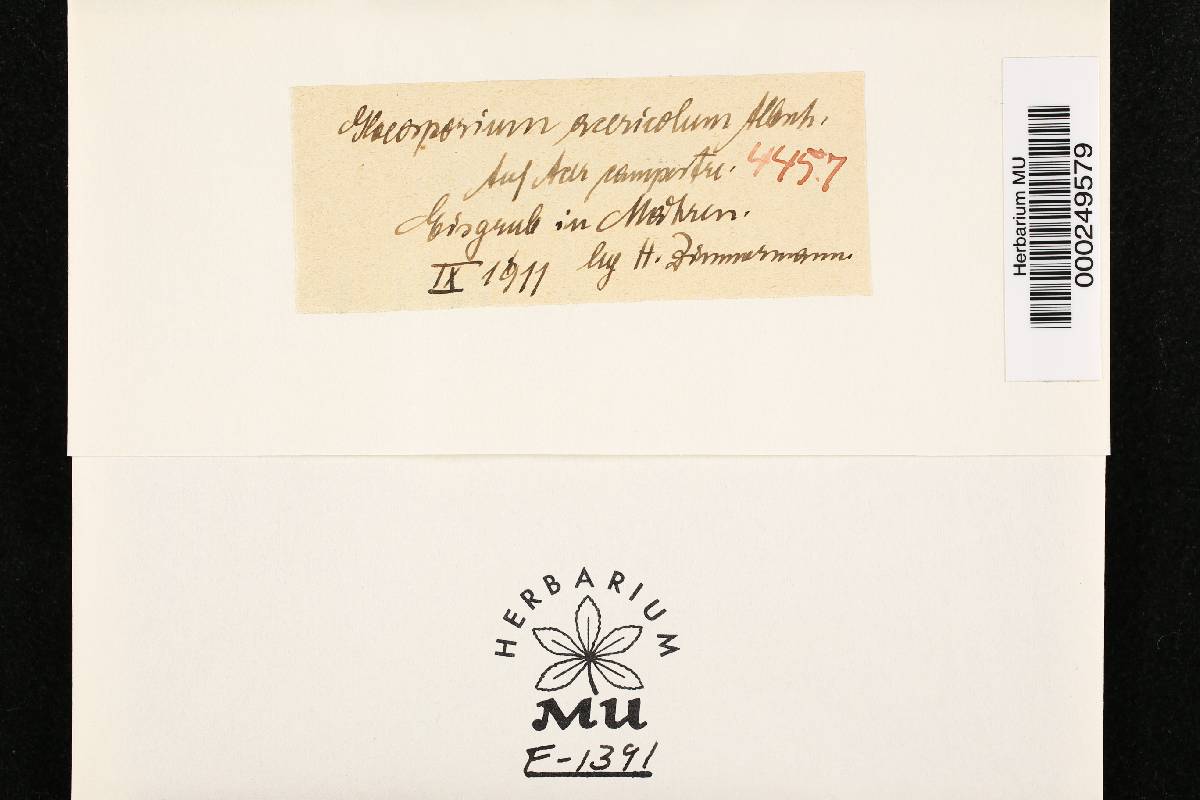 Gloeosporium acericolum Allesch.
Auf Acer campestre. 4457
Eisgrub in Mähren.
IX 1911 leg H. Zimmermann.
Herbarium MU
0000249579
HERBARIUM
MU
F-1391